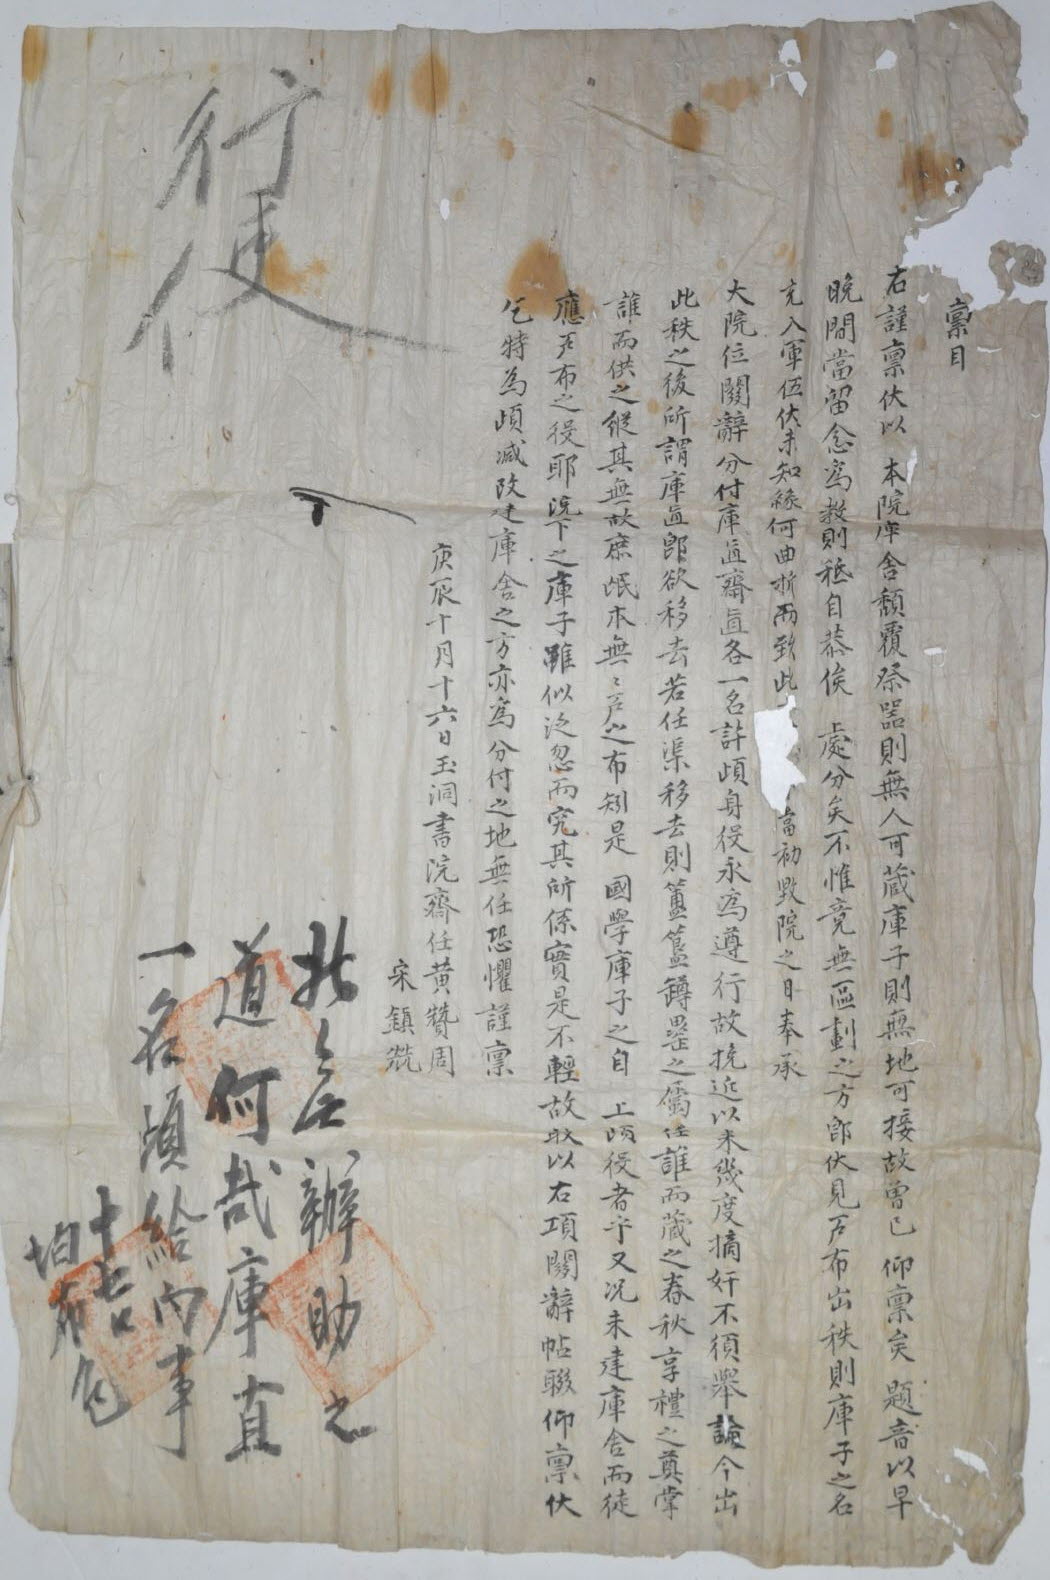 稟目
右謹稟伏以 本院庫舍頹覆祭器則無人可藏庫子則無地可接故曾已 仰稟矣 題音以早
晩間當留念爲敎則秪自恭俟 處分矣不惟竟無區劃之方卽伏見戶布出秩則庫子之名
充入軍伍伏未知緣何曲折而致此 當初毁院之日奉承
大院位關辭分付庫直齋直各一名許頉身役永爲遵行故挽近以來幾度摘奸不須擧論今出
此秩之後所謂庫直卽欲移去若任渠移去則簠簋罇罍之屬任誰而藏之春秋享禮之奠掌
誰而供之縱其無故庶氓本無〻戶之布矧是 國學庫子之自 上頉役者乎又況未建庫舍而徒
應戶布之役耶況下之庫子雖似泛忽而究其所係實是不輕故玆以右項關辭帖聯仰稟伏
乞特爲頉减改建庫舍之方亦爲分付之地無任恐懼謹稟
庚辰十月十六日玉洞書院齋任黃贊周
宋鎭
行使
辦助之
道何哉庫直
一名頉給向事
十七日